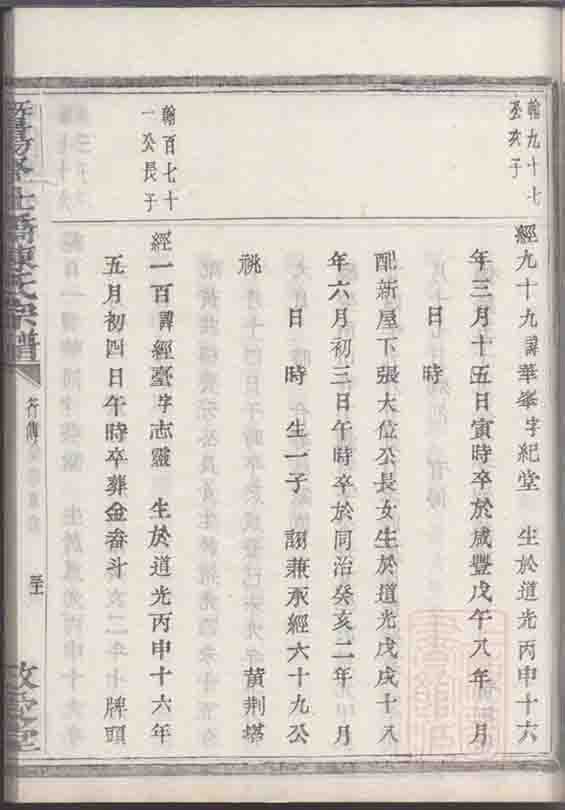 翰九十七
公次子
經九十九諱華峯字紀堂 生於道光丙申十六
年三月十五日寅時卒於咸豐戊午八年 月
日 時
配新屋下張大位公長女生於道光戊戌十八
年六月初三日午時卒於同治癸亥二年 月
日 時 生一子 詡兼承經六十九公
祧 黃荆塔
翰百七十
一公長子
經一百諱經臺字志靈 生於道光丙申十六年
五月初四日午時卒葬金畚斗 牌頭
橋陳氏宗譜
行傳